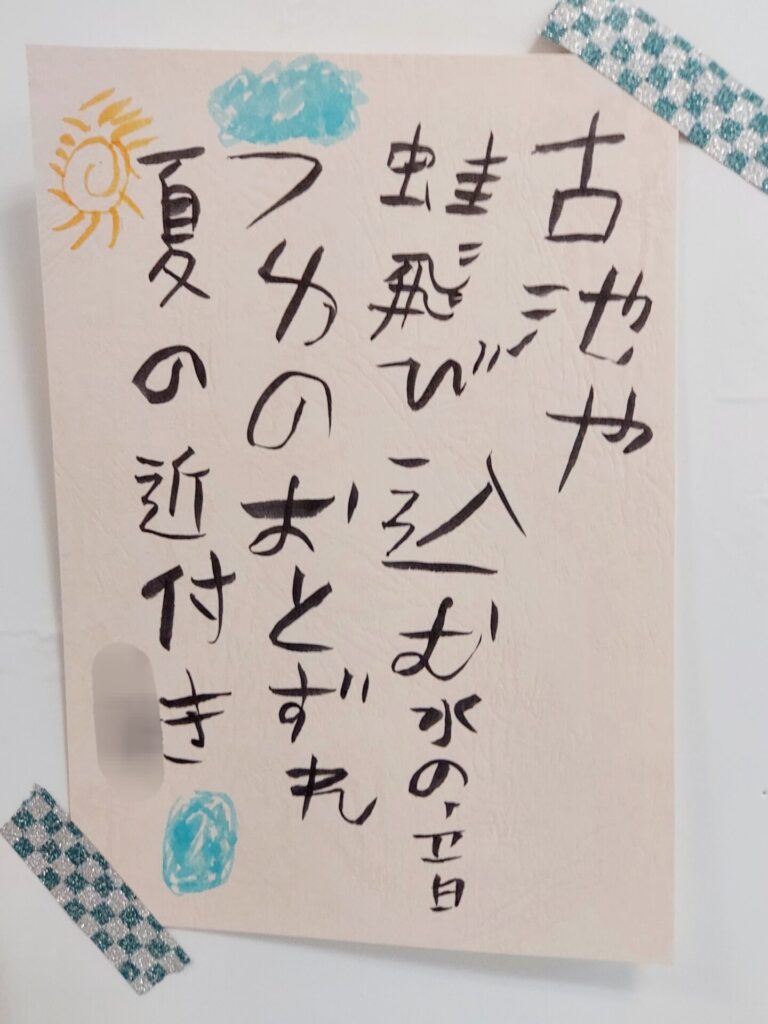 古池や
蛙飛び込む水の音
つゆのおとずれ
夏の近付き